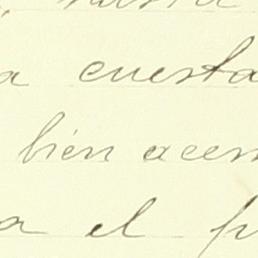 a cuesta
bien acem
a el p